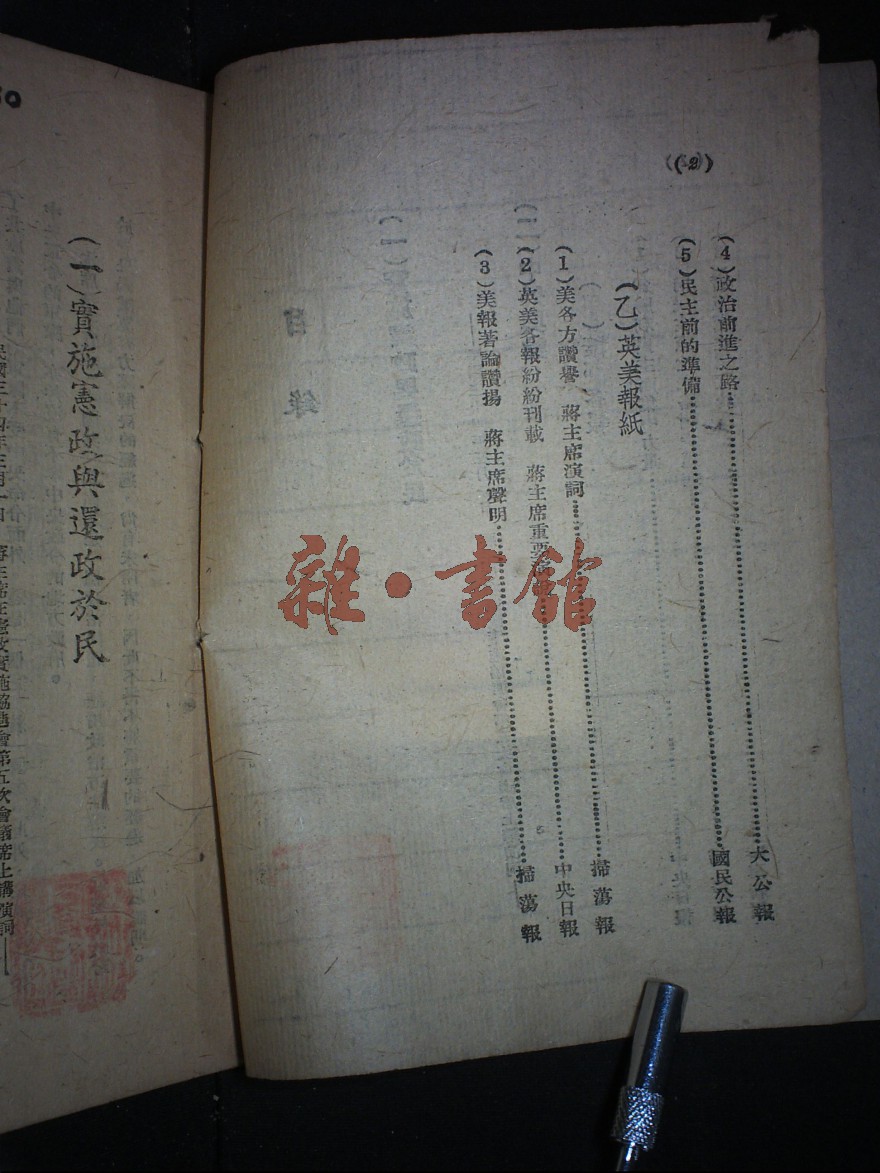 (2)
(4)政治前進之路……大公報
(5)民主前的準備……國民公報
(乙)英美報紙
(1)美各方讚譽 蔣主席演詞……掃蕩報
(2)英美各報紛紛刊載 蔣主席重要……中央日報
(3)美報著論讚揚 蔣主席聲明……掃蕩報
雜·書館
(一)實施憲政與還政於民
蔣主席在憲政實施協進會第五次會議席上講演詞